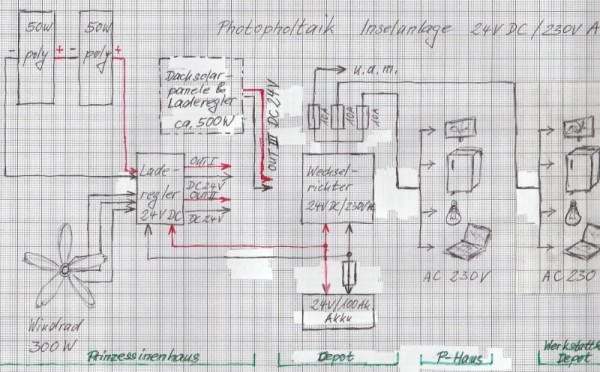 Photopholtaik Inselanlage 24V DC/230V A
50W
poly
50W
poly
- + - +
Dachsolar-
panele &
Laderegler
ca. 500W
OUT III DC 24V
u.a.m.
10A
10A
10A
Lade-
regler
24V DC
OUT I
DC 24V
OUT II
DC 24V
Wechsel-
richter
24V DC/230V AC
AC 230V
AC 230
24V/100Ah
Akku
Windrad
300W
Prinzessinenhaus
Depot
P-Haus
Werkstatt
Depot